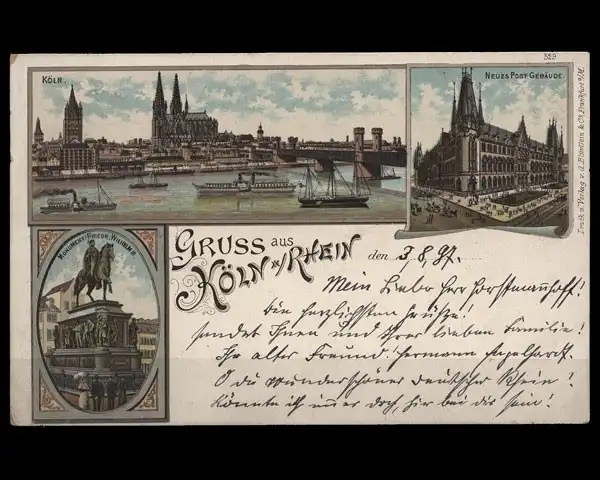 329
KÖLN.
NEUES POST GEBÄUDE.
Druck u. Verlag v. A. Blümlein & Co., Frankfurt a/M.
MONUMENT: FRIEDR. WILHELM III.
GRUSS aus
KÖLN a/RHEIN
den 3.8.97.
Mein lieber Herr Horstmannshoff!
Die herzlichsten Grüße!
sendet Ihnen und Ihrer lieben Familie!
Ihr alter Freund Hermann Engelhardt.
O du wunderschöner deutscher Rhein!
Könnte ich immer doch, hier bei dir sein!